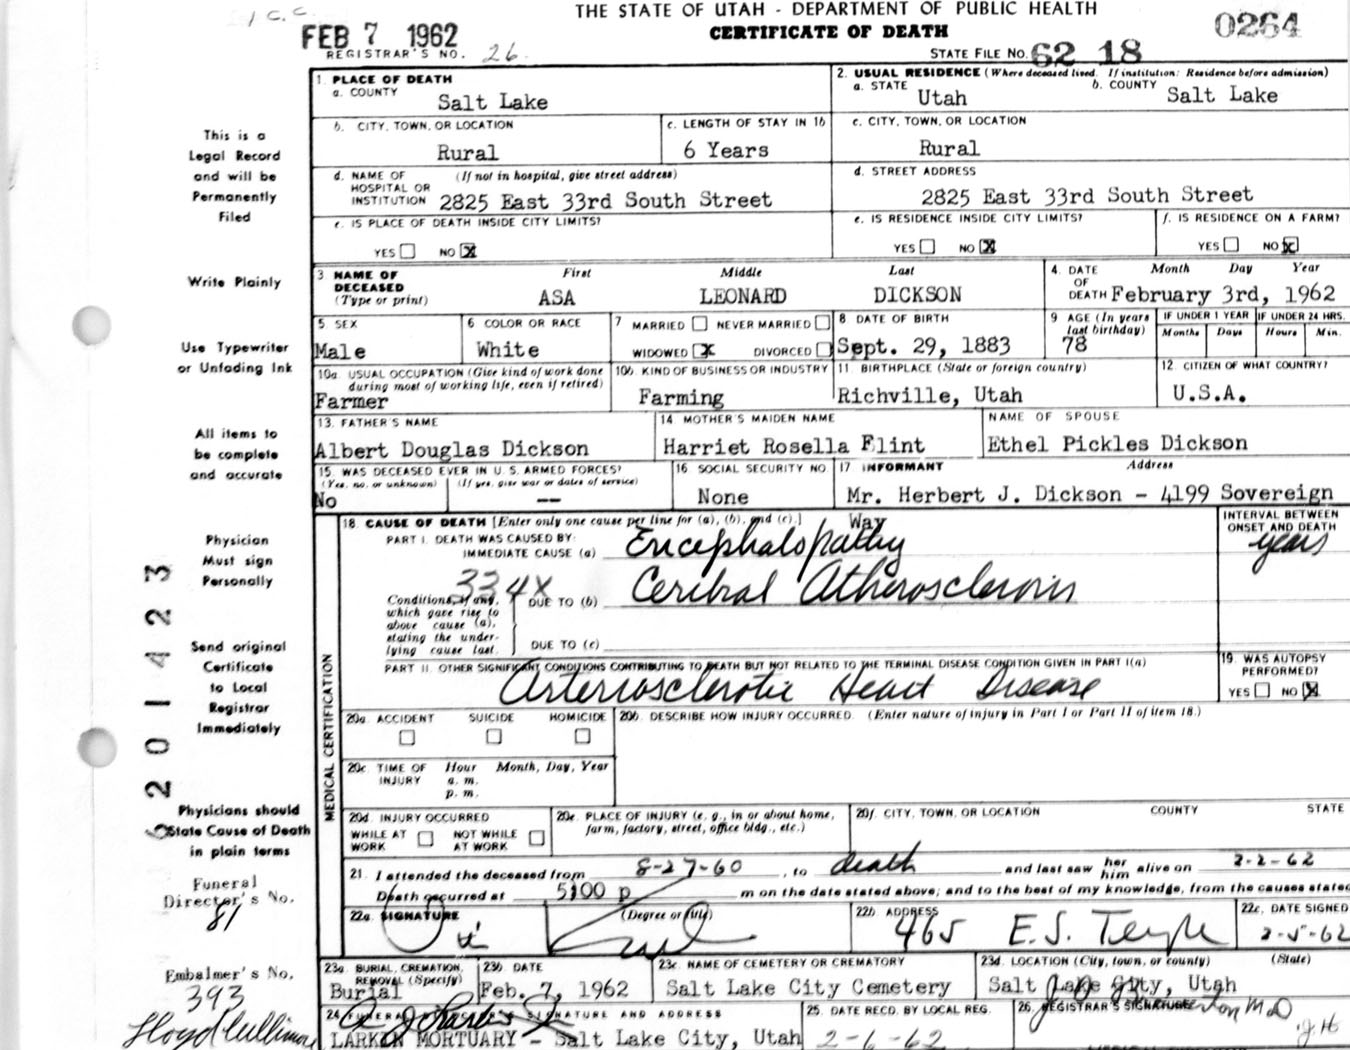 1 c.c.
THE STATE OF UTAH - DEPARTMENT OF PUBLIC HEALTH
FEB 7 1962
CERTIFICATE OF DEATH
0264
REGISTRAR'S NO. 26
STATE FILE NO. 62 18
1. PLACE OF DEATH
a. COUNTY Salt Lake
2. USUAL RESIDENCE (Where deceased lived. If institution: Residence before admission)
a. STATE Utah b. COUNTY Salt Lake
b. CITY, TOWN, OR LOCATION Rural
c. LENGTH OF STAY IN 1b 6 Years
c. CITY, TOWN, OR LOCATION Rural
d. NAME OF HOSPITAL OR INSTITUTION (If not in hospital, give street address) 2825 East 33rd South Street
d. STREET ADDRESS 2825 East 33rd South Street
e. IS PLACE OF DEATH INSIDE CITY LIMITS?
YES NO X
e. IS RESIDENCE INSIDE CITY LIMITS?
YES NO X
f. IS RESIDENCE ON A FARM?
YES NO X
3 NAME OF DECEASED (Type or print)
First Middle Last
ASA LEONARD DICKSON
4. DATE OF DEATH Month Day Year
February 3rd, 1962
5 SEX Male
6 COLOR OR RACE White
7 MARRIED NEVER MARRIED
WIDOWED X DIVORCED
8 DATE OF BIRTH Sept. 29, 1883
9 AGE (In years last birthday) 78
IF UNDER 1 YEAR Months Days
IF UNDER 24 HRS. Hours Min.
10a. USUAL OCCUPATION (Give kind of work done during most of working life, even if retired) Farmer
10b. KIND OF BUSINESS OR INDUSTRY Farming
11. BIRTHPLACE (State or foreign country) Richville, Utah
12. CITIZEN OF WHAT COUNTRY? U.S.A.
13. FATHER'S NAME Albert Douglas Dickson
14 MOTHER'S MAIDEN NAME Harriet Rosella Flint
NAME OF SPOUSE Ethel Pickles Dickson
15. WAS DECEASED EVER IN U. S. ARMED FORCES?
(Yes, no, or unknown) (If yes, give war or dates of service)
No --
16 SOCIAL SECURITY NO. None
17 INFORMANT Address
Mr. Herbert J. Dickson - 4199 Sovereign Way
18. CAUSE OF DEATH [Enter only one cause per line for (a), (b), and (c).]
INTERVAL BETWEEN ONSET AND DEATH
PART I. DEATH WAS CAUSED BY:
IMMEDIATE CAUSE (a) Encephalopathy years
334X
Conditions, if any, which gave rise to above cause (a), stating the underlying cause last.
DUE TO (b) Ceribral Atherosclerosis
DUE TO (c)
PART II. OTHER SIGNIFICANT CONDITIONS CONTRIBUTING TO DEATH BUT NOT RELATED TO THE TERMINAL DISEASE CONDITION GIVEN IN PART I(a)
Arteriosclerotic Heart Disease
19. WAS AUTOPSY PERFORMED?
YES NO X
MEDICAL CERTIFICATION
20a. ACCIDENT SUICIDE HOMICIDE
20b. DESCRIBE HOW INJURY OCCURRED. (Enter nature of injury in Part I or Part II of item 18.)
20c. TIME OF INJURY Hour Month, Day, Year
a. m.
p. m.
20d. INJURY OCCURRED
WHILE AT WORK NOT WHILE AT WORK
20e. PLACE OF INJURY (e. g., in or about home, farm, factory, street, office bldg., etc.)
20f. CITY, TOWN, OR LOCATION COUNTY STATE
21. I attended the deceased from 8-27-60, to death and last saw her him alive on 2-2-62
Death occurred at 5:00 p m on the date stated above; and to the best of my knowledge, from the causes stated
22a. SIGNATURE (Degree or title)
22b. ADDRESS 465 E. S. Temple
22c. DATE SIGNED 2-5-62
23a. BURIAL, CREMATION, REMOVAL (Specify) Burial
23b. DATE Feb. 7, 1962
23c. NAME OF CEMETERY OR CREMATORY Salt Lake City Cemetery
23d. LOCATION (City, town, or county) (State) Salt Lake City, Utah
24. FUNERAL DIRECTOR'S SIGNATURE AND ADDRESS
LARKIN MORTUARY - Salt Lake City, Utah
25. DATE RECD. BY LOCAL REG. 2-6-62
26. REGISTRAR'S SIGNATURE
This is a
Legal Record
and will be
Permanently
Filed
Write Plainly
Use Typewriter
or Unfading Ink
All items to
be complete
and accurate
Physician
Must sign
Personally
Send original
Certificate
to Local
Registrar
Immediately
Physicians should
State Cause of Death
in plain terms
Funeral
Director's No.
81
Embalmer's No.
393
Lloyd Cullimore
2 0 1 4 2 3